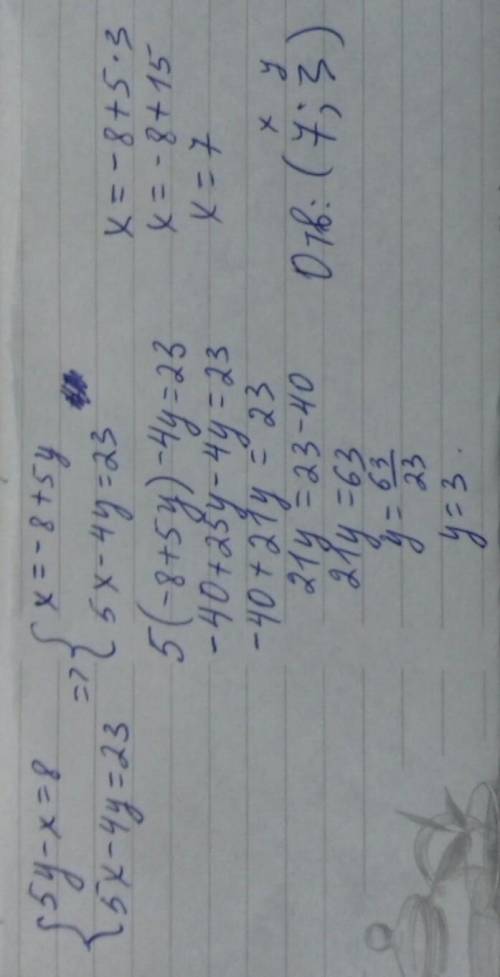 { 5y-x=8
{ 5x-4y=23
=> { x=-8+5y
{ 5x-4y=23
5(-8+5y)-4y=23
-40+25y-4y=23
-40+21y=23
21y=23-40
21y=63
y=63/23
y=3.
x=-8+5·3
x=-8+15
x=7
x y
Отв: (7;3)